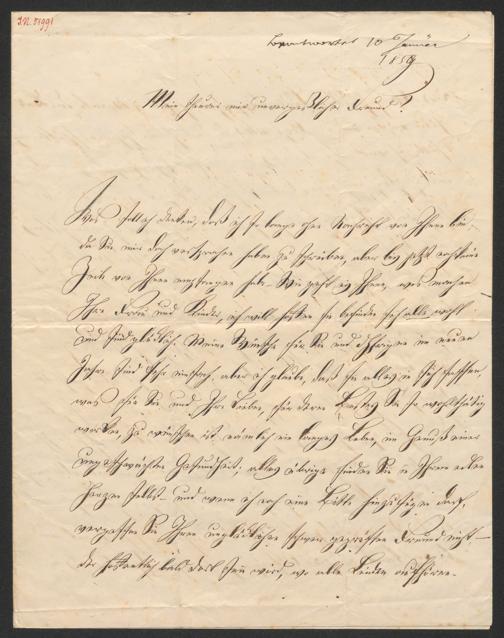 I.N. 31991
beantwortet 10 Jänner
1859
Mein theurer mir unvergeßlicher Freund!
Was soll ich denken, daß ich so lange ohne Nachricht von Ihnen bin,
da Sie mir doch versprochen haben zu schreiben, aber bis jetzt noch keine
Zeile von Ihnen empfangen habe. Wie geht es Ihnen, was machen
Ihre Frau und Kinder, ich will hoffen sie befinden sich alle wohl
und sind glücklich. Meine Wünsche für Sie und Ihrigen im neuen
Jahre sind sehr einfach, aber ich glaube, daß sie alles in sich fassen,
was für Sie und Ihre Lieben, für deren Bestes Sie so wohlthätig
wirken, zu wünschen ist, nämlich ein langes Leben, im Genuß einer
ungeschwächten Gesundheit, alles übrige finden Sie in Ihrem edlen
Herzen selbst – und wenn ich noch eine Bitte hinzufügen darf,
vergessen Sie Ihren unglücklichen schwer geprüften Freund nicht, –
der hoffentlich bald dort sein wird, wo alle Leiden aufhören. –